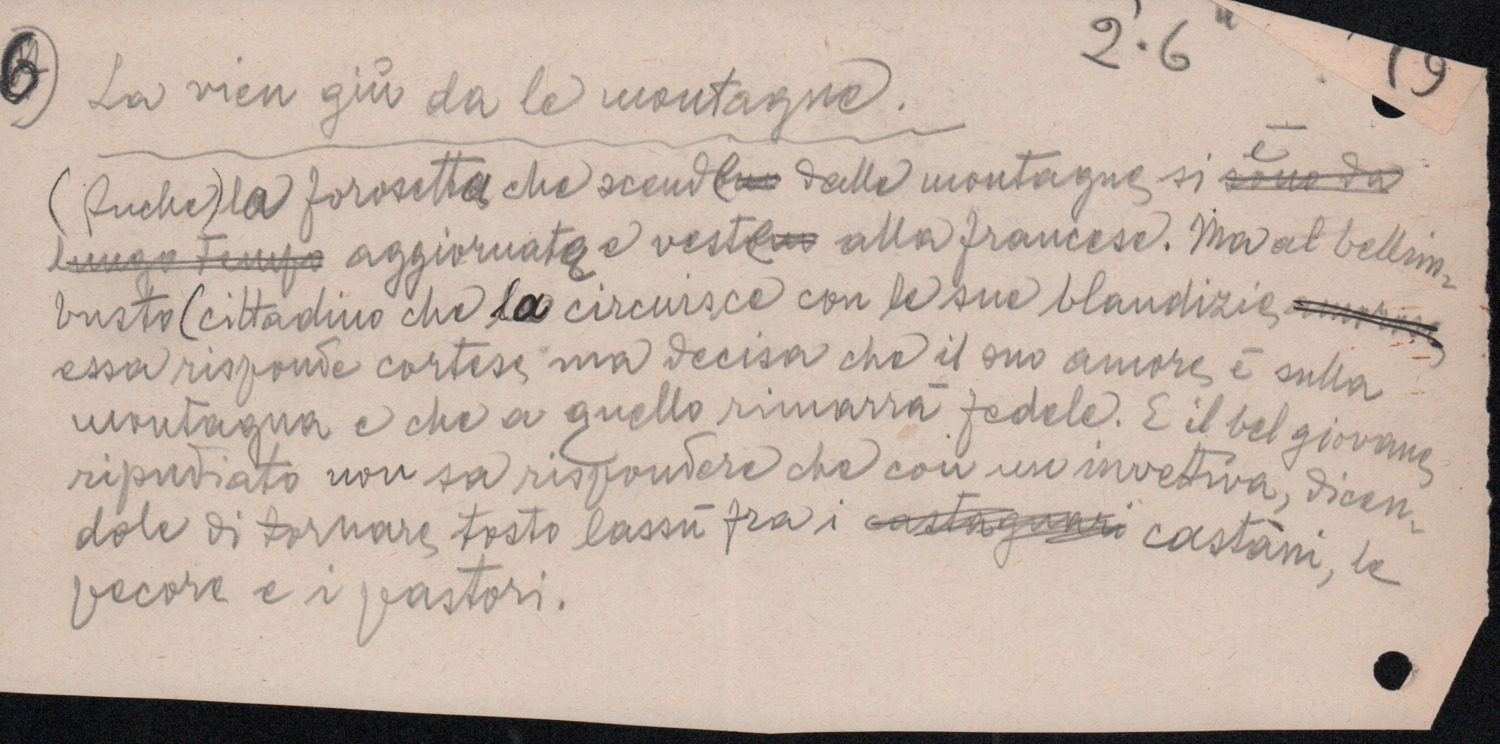 2' 6" 19
6) La vien giù da le montagne.
(Anche) la forosetta che scende dalle montagne si è sono da
lungo tempo aggiornata e veste alla francese. Ma al bellim-
busto (cittadino che la circuisce con le sue blandizie amorose,
essa risponde cortese ma decisa che il suo amore è sulla
montagna e che a quello rimarrà fedele. E il bel giovane
ripudiato non sa rispondere che con un invettiva, dicen-
dole di tornare tosto lassù fra i castagnari castàni, le
pecore e i pastori.